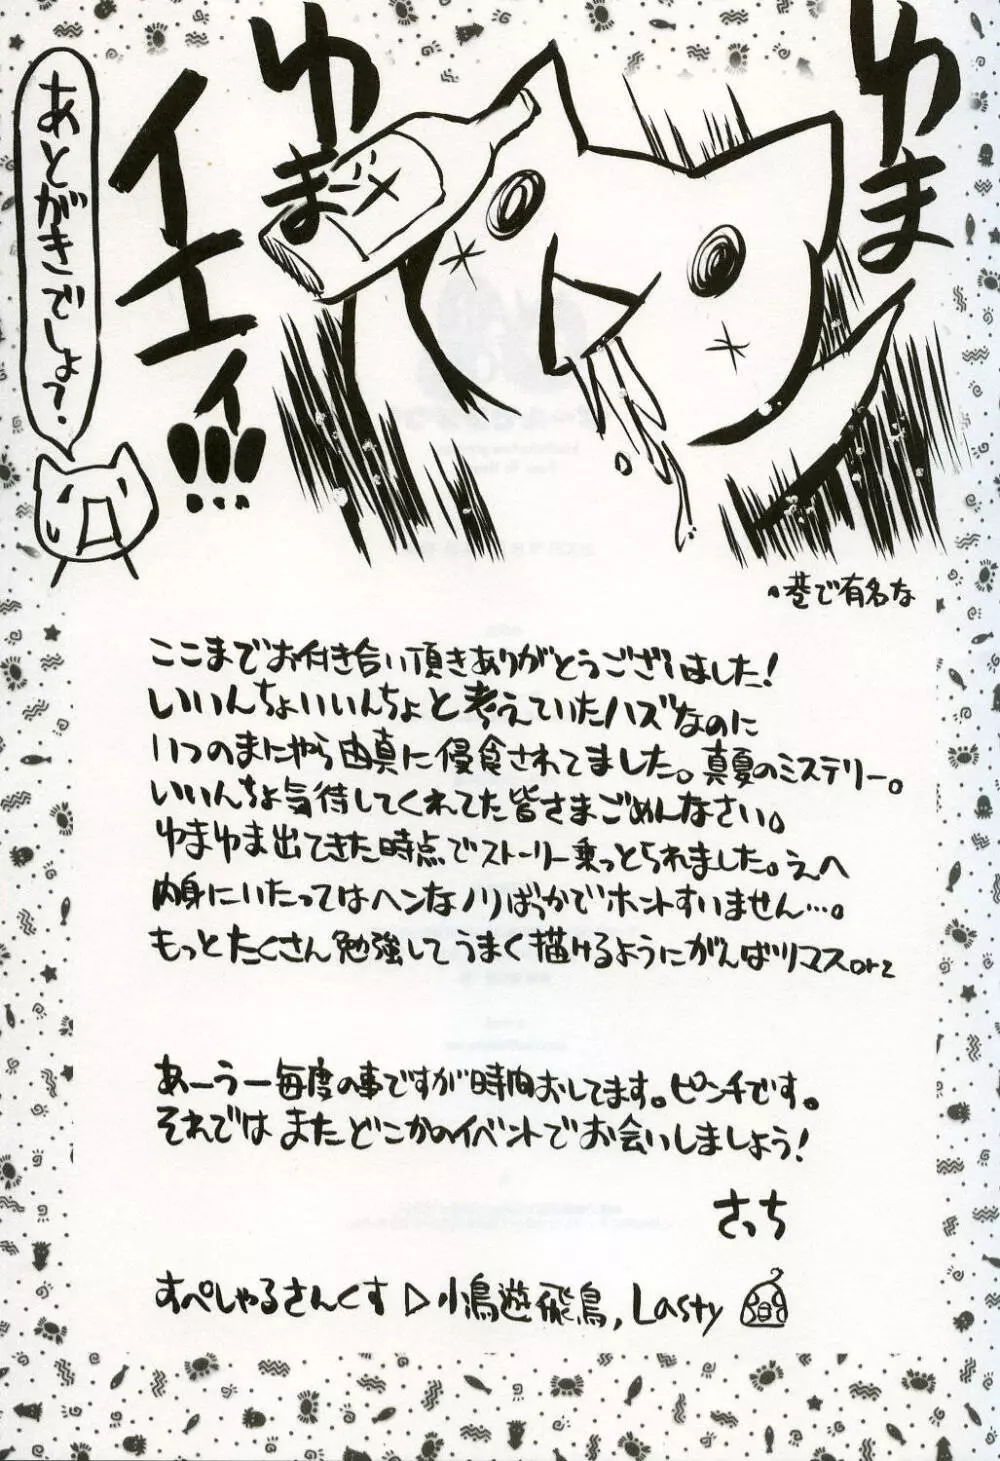 ゆま
ゆま
イエィ!!!
あとがきでしょ?
巷で有名な
ここまでお付き合い頂きありがとうございました!
いいんちょいいんちょと考えていたハズなのに
いつのまにやら由真に侵食されてました。真夏のミステリー。
いいんちょ気待してくれてた皆さまごめんなさい。
ゆまゆま出てきた時点でストーリー乗っとられました。えへ
内身にいたってはヘンなノリばっかでホントすいません…。
もっとたくさん勉強してうまく描けるようにがんばツマスorz
あーうー毎度の事ですが時間おしてます。ピンチです。
それではまたどこかのイベントでお会いしましょう!
さっち
すぺしゃるさんくす▷小鳥遊飛鳥, Lasty